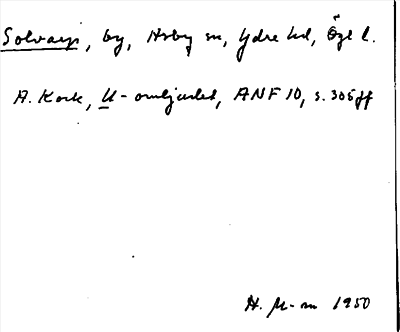 Solvarp, by, Asby sn, Ydre hd, Ögl l.
A. Kock, U-omljudet, ANF 10, s. 306 ff
H. M-m 1950